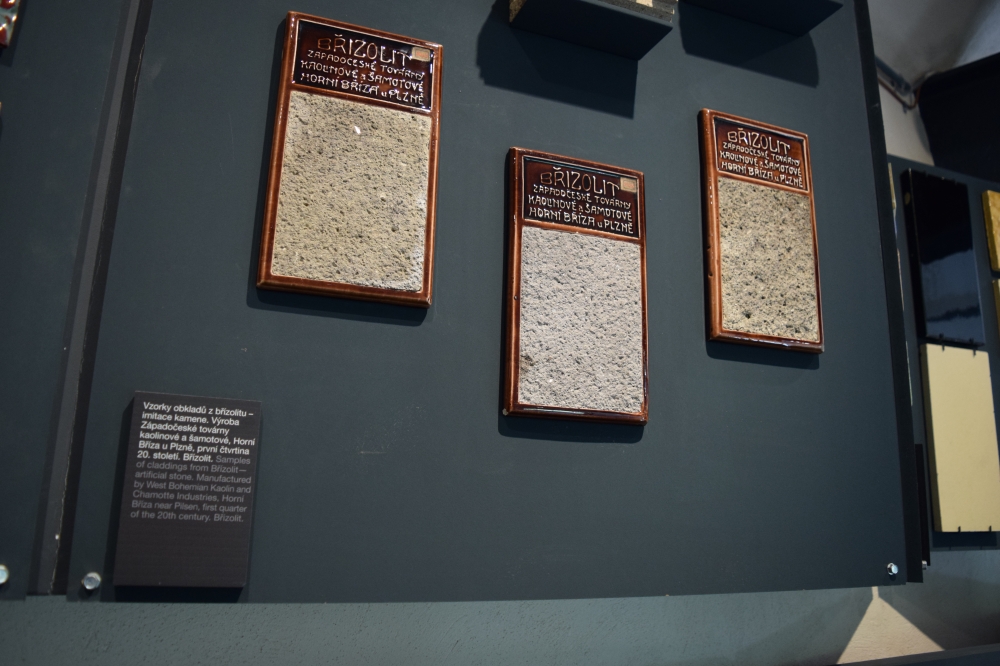 BŘIZOLIT
ZÁPADOČESKÉ TOVÁRNY
KAOLINOVÉ a ŠAMOTOVÉ
HORNÍ BŘÍZA u PLZNĚ
BŘIZOLIT
ZÁPADOČESKÉ TOVÁRNY
KAOLINOVÉ a ŠAMOTOVÉ
HORNÍ BŘÍZA u PLZNĚ
BŘIZOLIT
ZÁPADOČESKÉ TOVÁRNY
KAOLINOVÉ a ŠAMOTOVÉ
HORNÍ BŘÍZA u PLZNĚ
Vzorky obkladů z břizolitu –
imitace kamene. Výroba
Západočeské továrny
kaolinové a šamotové, Horní
Bříza u Plzně, první čtvrtina
20. století. Břizolit. Samples
of claddings from Břizolit—
artificial stone. Manufactured
by West Bohemian Kaolin and
Chamotte Industries, Horní
Bříza near Pilsen, first quarter
of the 20th century. Břizolit.